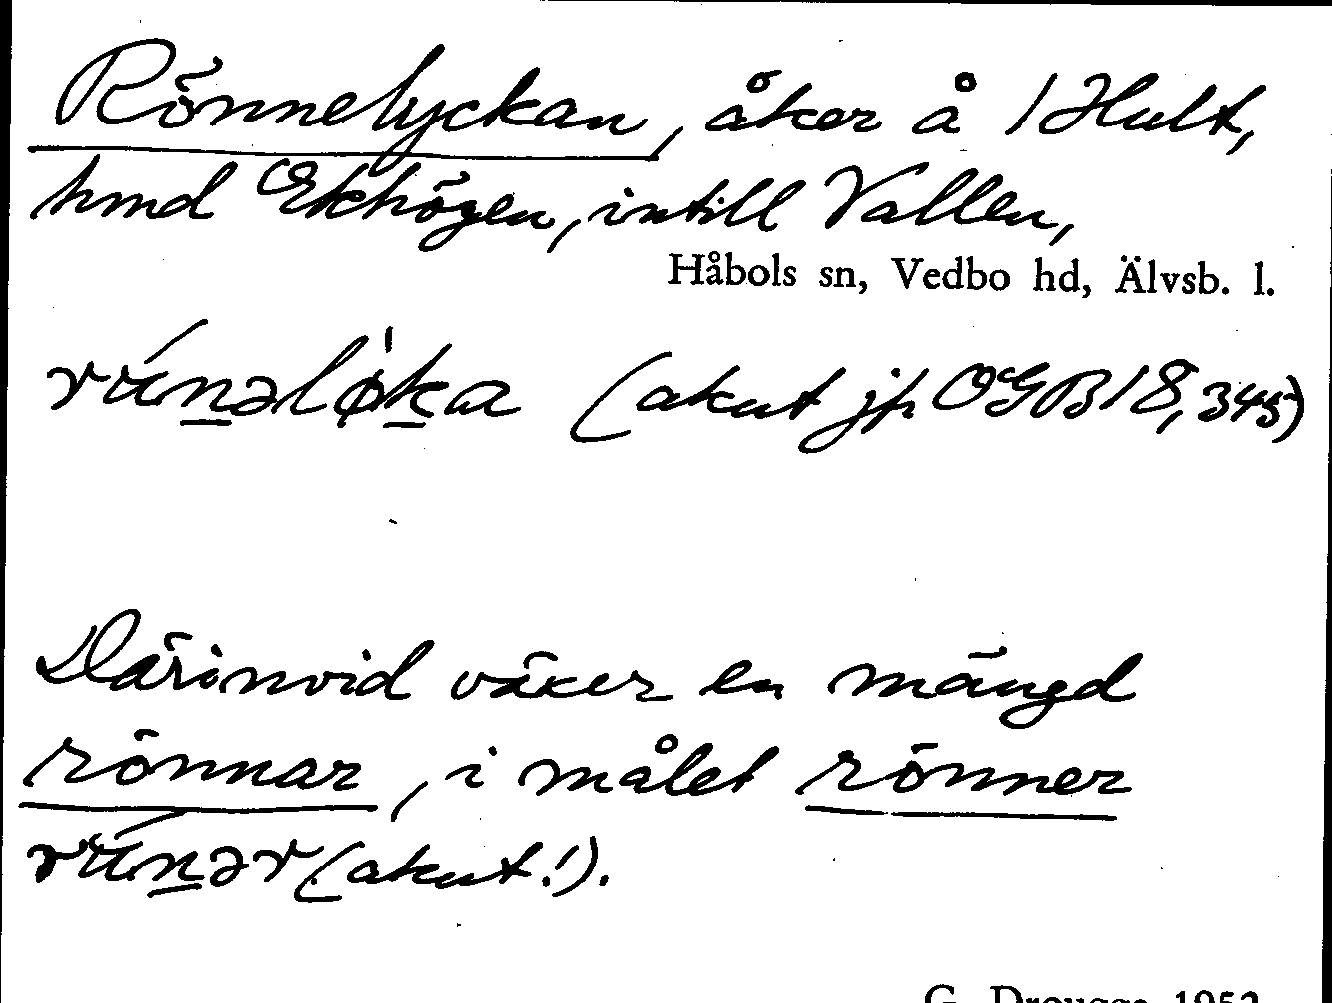 Rönnelyckan, åker å 1 Hult,
hmd Ekhögen, intill Vallen,
Håbols sn, Vedbo hd, Älvsb. l.
(akut jfr OGB 18, 345)
Därinvid växer en mängd
rönnar, i målet rönner
(akut!).
G. Drougge 1952